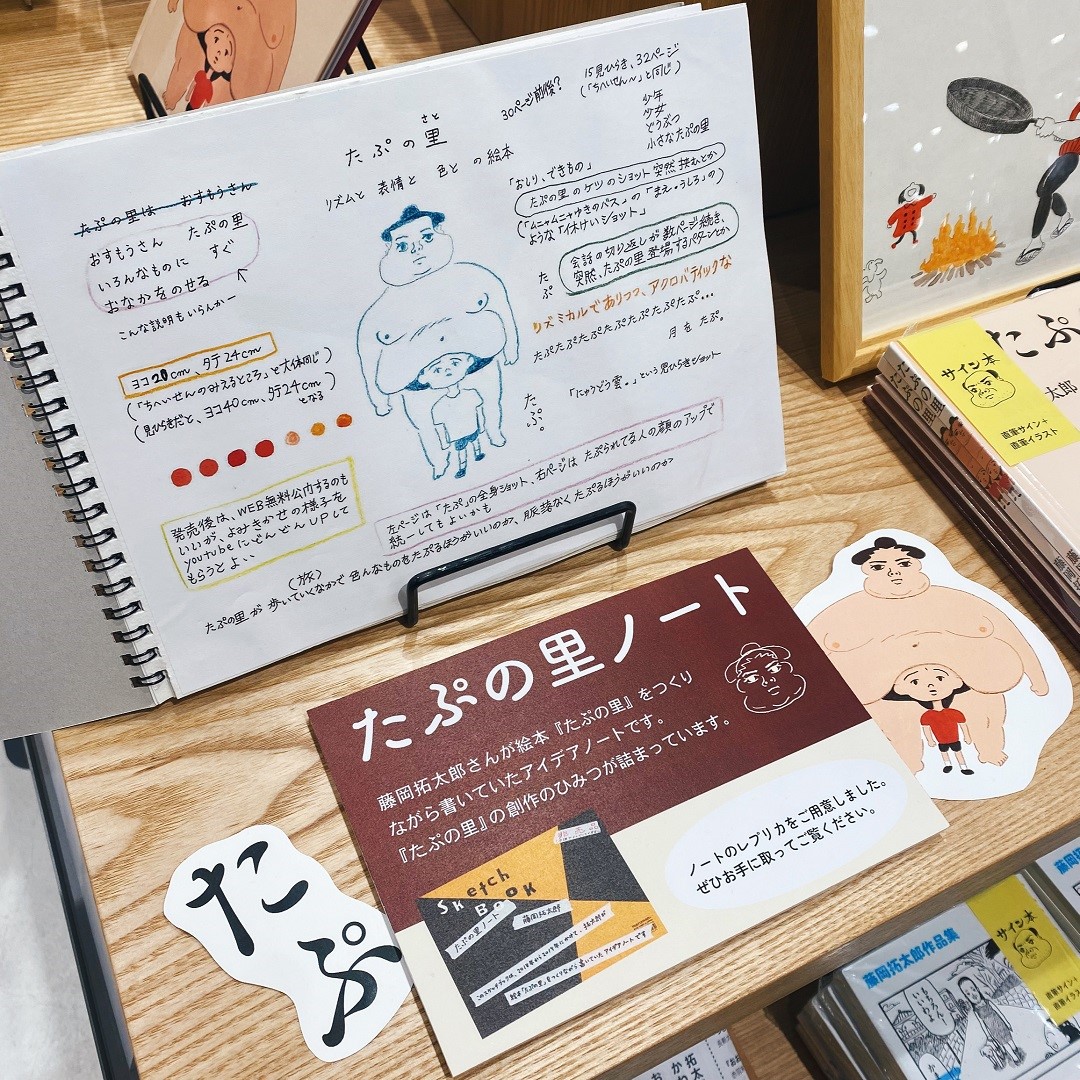 さと
たぷの里
リズムと 表情と 色と の絵本
30ページ前後?
15見ひらき、32ページ
(「ちへいせん〜」と同じ)
少年
少女
どうぶつ
小さなたぷの里
たぷの里は おすもうさん
おすもうさん たぷの里
いろんなものに すぐ
おなかをのせる
こんな説明もいらんかー
ヨコ20cm、タテ24cm
(「ちへいせんのみえるところ」と大体同じ)
(見ひらきだと、ヨコ40cm、タテ24cm
となる
発売後は、WEB無料公開するのも
いいが、よみきかせの様子を
youtubeにどんどんUPして
もらうとよい、、
「おしり、できもの」
たぷの里のケツのショット突然挟むとか
「ムニャムニャゆきのバス」の「まえ。うしろ」の
ような「休けいショット」
会話の切り返しが数ページ続き、
突然、たぷの里登場するパターンとか
たぷ
リズミカルでありつつ、アクロバティックな
たぷたぷたぷたぷたぷたぷたぷ...
月を たぷ。
「にゅうどう雲。」という見ひらきショット
たぷ。
左ページは「たぷ」の全身ショット、右ページは たぷられてる人の顔のアップで
統一してもよいかも
(旅)
たぷの里が 歩いていくなかで 色んなものをたぷるほうがいいのか、脈絡なくたぷるほうがいいのか?
たぷの里ノート
藤岡拓太郎さんが絵本『たぷの里』をつくり
ながら書いていたアイデアノートです。
『たぷの里』の創作のひみつが詰まっています。
ノートのレプリカをご用意しました。
ぜひお手に取ってご覧ください。
Sketch
Book
たぷの里ノート
藤岡拓太郎
たぷ
サイン本
直筆サイン+
直筆イラスト
たぷ
太郎
たぷの里
サイン本
直筆サイン+
直筆イラスト
藤岡拓太郎作品集